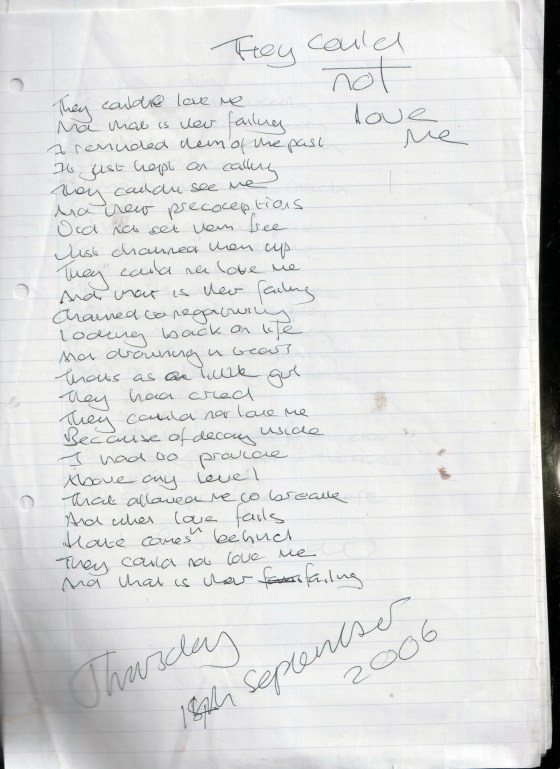 They could
not
love
me
They couldn't love me
And that is their failing
I reminded them of the past
It just kept on calling
They couldn't see me
And their precoceptions
Did not set them free
Just chained them up
They could not love me
And that is their failing
Chained to negativity
Looking back on life
And drowning in tears
Thats as a little girl
They had cried
They could not love me
Because of decay inside
I had to provide
Above any level
That allowed me to breathe
And when love fails
Hate comes in behind
They could not love me
And that is their failing
Thursday
18th September
2006